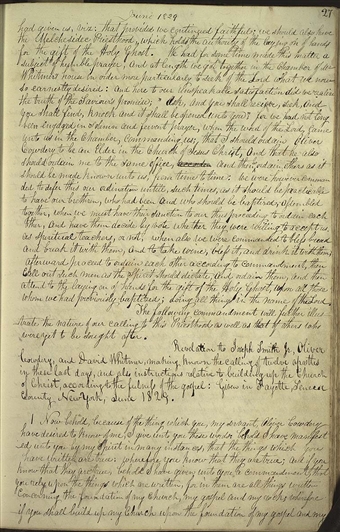 June 1829
27
had given us, viz: that provided we continued faithful; we should also have
the Melchesidec Priesthood, which holds the authority of the laying on of hands
for the gift of the Holy Ghost. We had for some time made this matter a
subject of humble prayer, and at length we got together in the Chamber of Mr
Whitmer's house in order more particularly to seek of the Lord what we now
so earnestly desired: and here to our unspeakable satisfaction did we realize
the truth of the Saviour's promise; "Ask, and you shall receive, seek, and
you shall find, knock and it shall be opened unto you; for we had not long
been engaged in solemn and fervent prayer, when the word of the Lord, came
unto us in the Chamber, commanding us; that I should ordain Oliver
Cowdery to be an Elder in the Church of Jesus Christ, and that he also
should ordain me to the same office, and then ordain others as it
should be made known unto us, from time to time: We were however comman-
ded to defer this our ordination until, such times, as it should be practicable
to have our brethren, who had been and who should be baptized, assembled
together, when we must have their sanction to our thus proceeding to ordain each
other, and have them decide by vote whether they were willing to accept us,
as spiritual teachers, or not, when also we were commanded to bless bread
and break it with them, and to take wine, bless it, and drink it with them,
afterward proceed to ordain each other according to commandment, then
call out such men as the Spirit should dictate, and ordain them, and then
attend to the laying on of hands for the gift of the Holy Ghost, upon all those
whom we had previously baptized; doing all things in the name of the Lord.
The following commandment will further illus-
trate the nature of our calling to this Priesthood as well as that of others who
were yet to be sought after.
Revelation to Joseph Smith Jr, Oliver
Cowdery, and David Whitmer, making known the calling of twelve apostles
in these last days, and also instructions relative to building up the Church
of Christ, according to the fulness of the gospel: Given in Fayette, Seneca
County, New York, June 1829.
1 Now behold, because of the thing which you, my servant Oliver Cowdery
have desired to know of me, I give unto you these words: Behold I have manifest-
ed unto you by my Spirit in many instances, that the things which you
have written are true: wherefore you know that they are true; and if you
know that they are true, behold I have given unto you a commandment, that
you rely upon the things which are written, for in them are all things written
concerning the foundation of my Church, my gospel and my rock; wherefore
if you shall build up my Church upon the foundation of my gospel and my